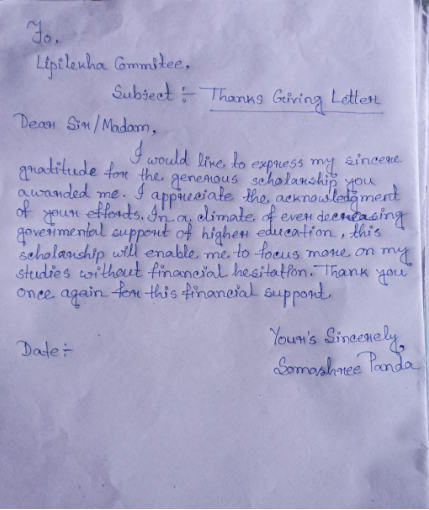 To,
Lipilekha Commitee,
Subject :- Thanks Giving Letter
Dear Sir/Madam,
I would like to express my sincere
gratitude for the generous scholarship you
awarded me. I appreciate the acknowledgment
of your efforts. In a climate of ever decreasing
govermental support of higher education, this
scholarship will enable me to focus more on my
studies without financial hesitation. Thank you
once again for this financial support.
Your's Sincerely,
Date :-
Somashree Panda